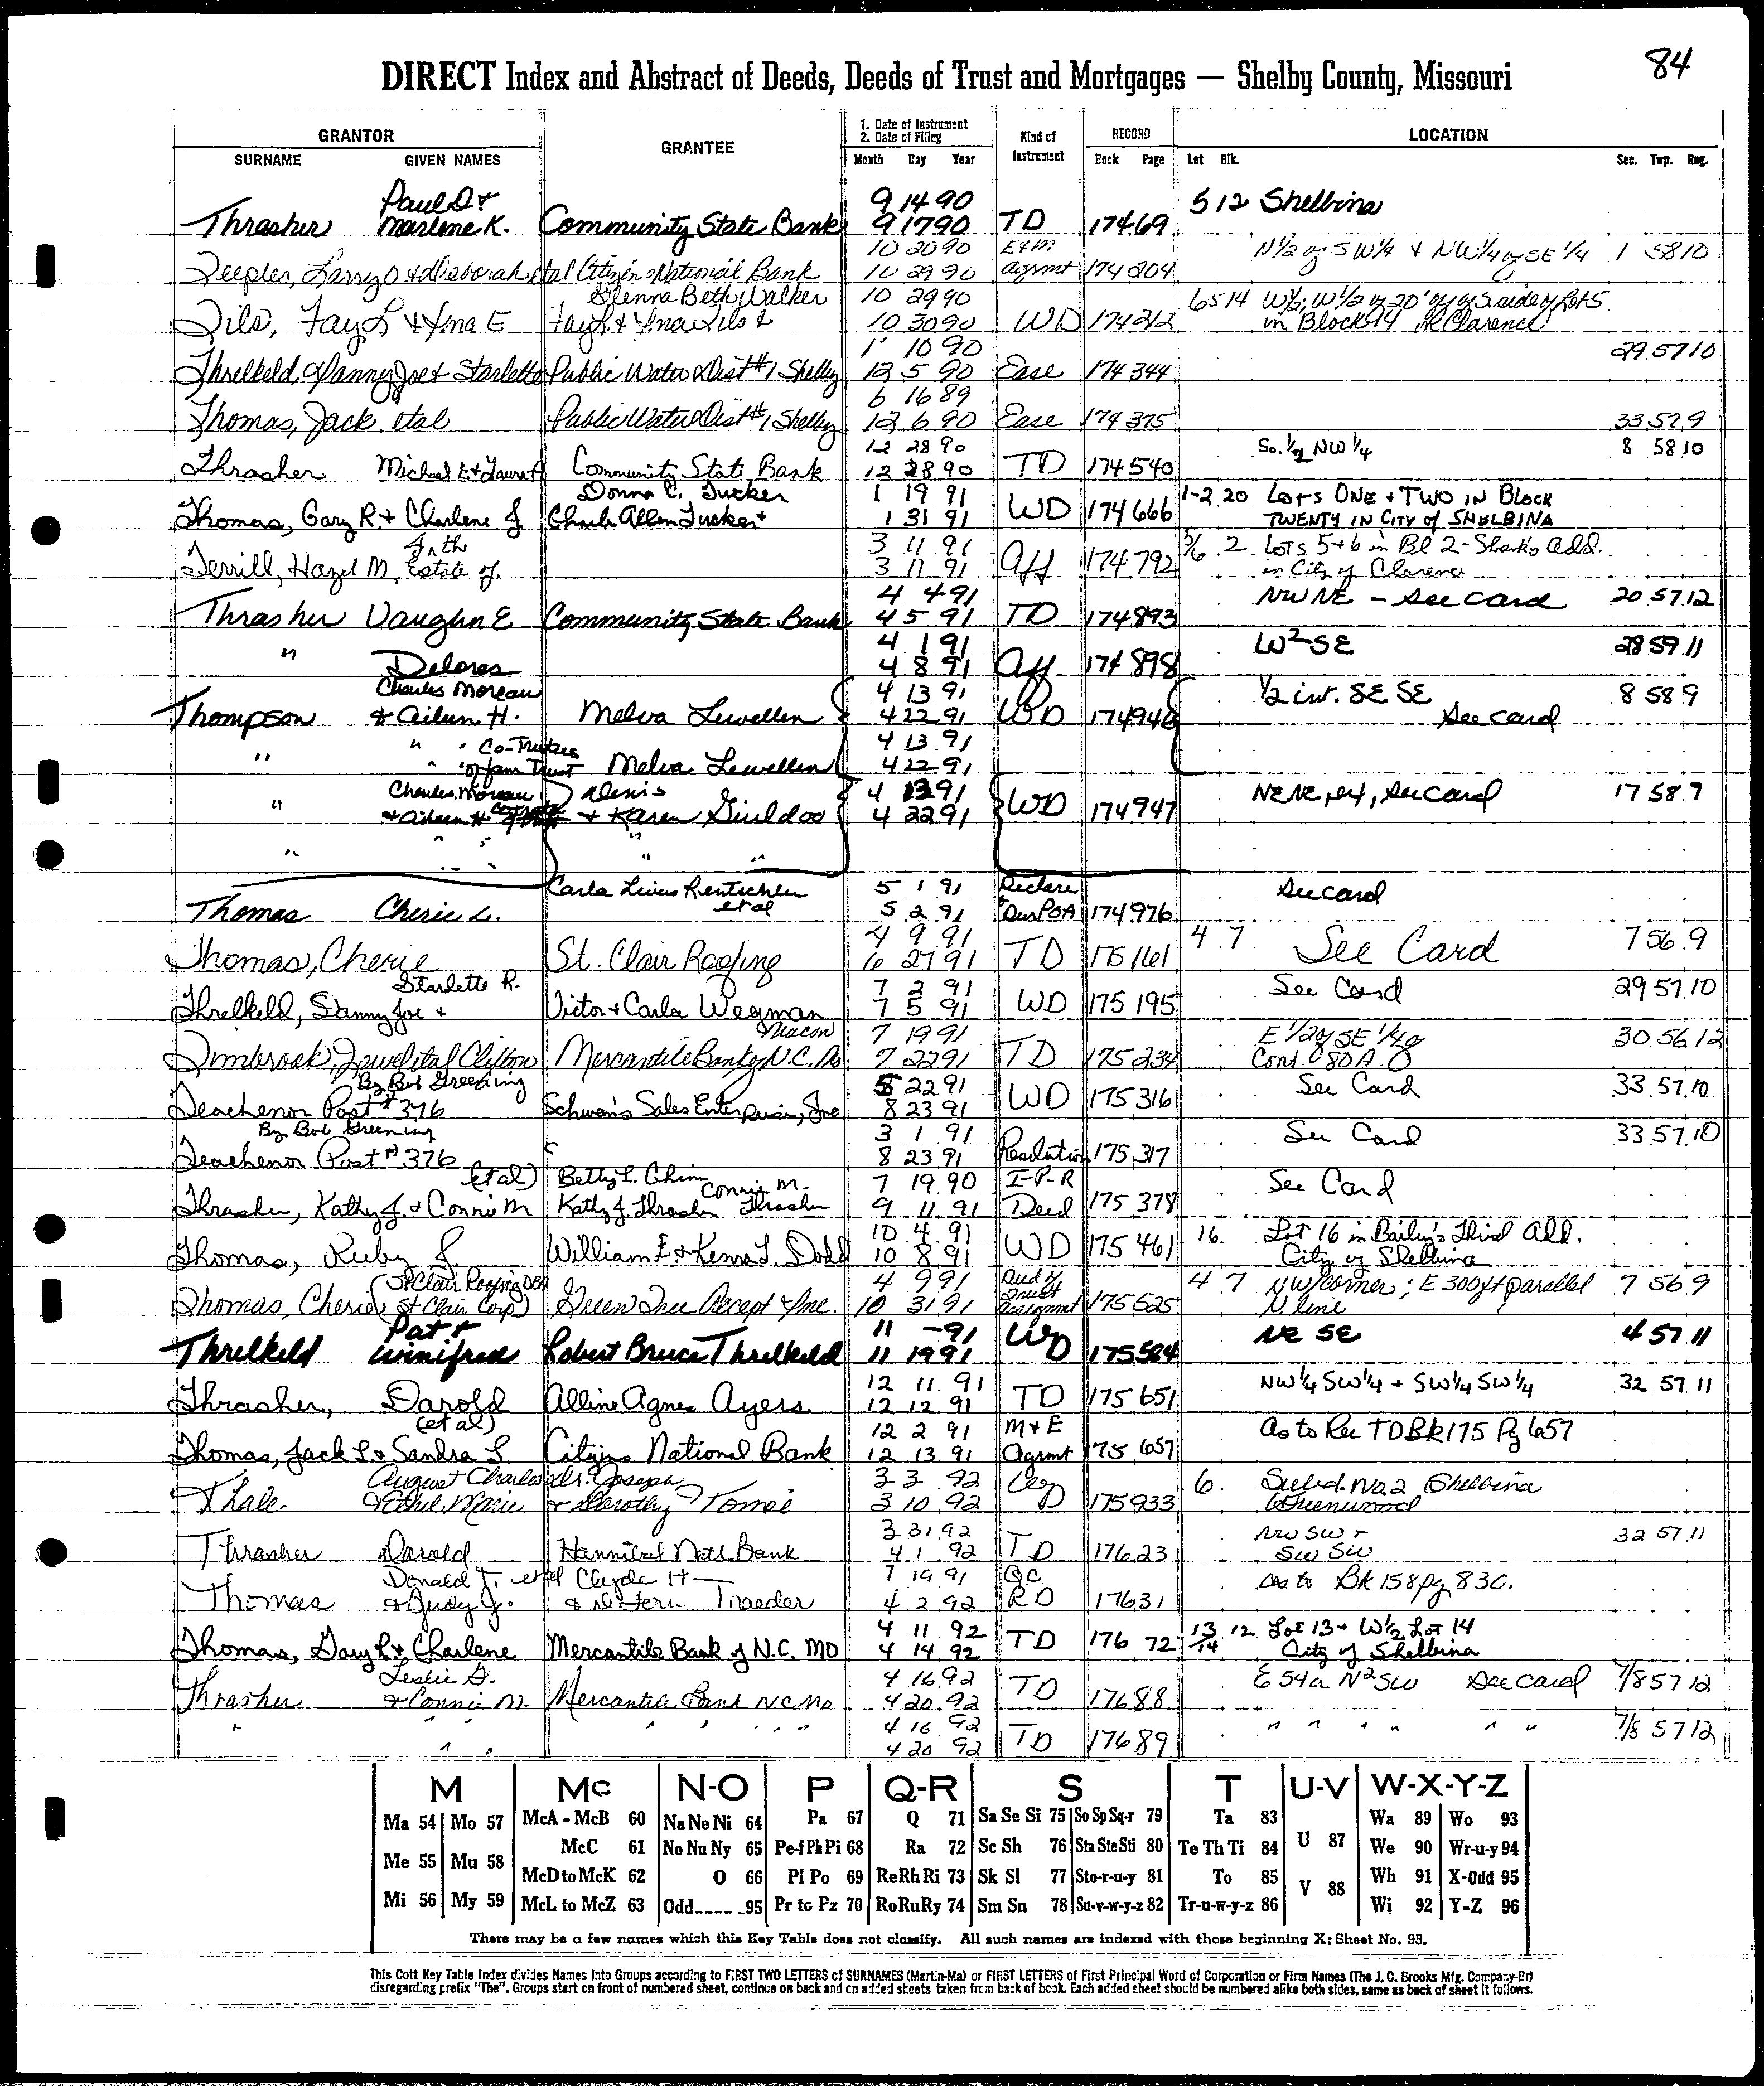 84
DIRECT Index and Abstract of Deeds, Deeds of Trust and Mortgages — Shelby County, Missouri
GRANTOR GRANTEE 1. Date of Instrument 2. Date of Filing Kind of Instrument RECORD LOCATION
SURNAME GIVEN NAMES Month Day Year Book Page Lot Blk. Sec. Twp. Rng.
Paul D & 9 14 90 5 12 Shelbina
Thrasher Marlene K. Community State Bank 9 17 90 TD 174 69
10 20 90 E&M N 1/2 of SW 1/4 & NW 1/4 of SE 1/4 1 58 10
Teeples, Larry O & Deborah etal Citizens National Bank 10 29 90 agrmt 174 204
Glenna Beth Walker 10 29 90 6 5 14 W 1/2; W 1/2 of 20' of S side of Lot 5
Tils, Fay L & Ina E Fay L & Ina Tils & 10 30 90 WD 174 212 in Block 14 Clarence
1 10 90 29 57 10
Threlkeld, Danny Joe & Starlette Public Water Dist #1 Shelby 12 5 90 Ease 174 344
6 16 89
Thomas, Jack etal Public Water Dist #1 Shelby 12 6 90 Ease 174 375 33 57 9
12 28 90 So. 1/2 NW 1/4 8 58 10
Thrasher Michael E & Laura Community State Bank 12 28 90 TD 174 540
Donna C. Tucker 1 19 91 1-2 20 Lots ONE & TWO IN BLOCK
Thomas, Gary R. & Charlene J Charles Allen Tucker & 1 31 91 WD 174 666 TWENTY IN CITY of SHELBINA
3 11 91 5/6 2 Lots 5 & 6 in Bl 2 - Shark's Add.
Terrill, Hazel M, Estate of 3 11 91 Aff 174 792 in City of Clarence
4 4 91 NW NE - See Card 20 57 12
Thrasher Vaughn E Community State Bank 4 5 91 TD 174 893
4 1 91 W2 SE 28 59 11
" Delores 4 8 91 Aff 174 898
Charles Moreau 4 13 91 1/2 int. SE SE 8 58 9
Thompson & Aileen H. Melva Lewellen 4 22 91 WD 174 946 See Card
" " Co-Trustees 4 13 91
" of fam Trust Melva Lewellen 4 22 91
Charles Moreau Alexis 4 13 91 NE NE, See Card 17 58 9
" & Aileen H & Karen Guildoo 4 22 91 WD 174 947
" " " " "
Carla Rentschler 5 1 91 Declare See Card
Thomas Cherie L. et al 5 2 91 & Dur POA 174 976
4 9 91 4 7 See Card 7 56 9
Thomas, Cherie St. Clair Roofing 6 27 91 TD 175 161
Starlette R. 7 2 91 See Card 29 57 10
Threlkeld, Danny Joe & Victor & Carla Wegman 7 5 91 WD 175 195
Macon 7 19 91 E 1/2 of SE 1/4 30 56 12
Timbrook, Jewel etal Clifton Mercantile Bank of N.C. Mo 7 22 91 TD 175 234 Cont. 80 A.
By Bob Greening 5 22 91 See Card 33 57 10
Teachenor Post #376 Schwan's Sales Enterprises, Inc 8 23 91 WD 175 316
By Bob Greening 3 1 91 See Card 33 57 10
Teachenor Post #376 8 23 91 Resolution 175 317
(et al) Betty L. Connie M. 7 19 90 I-P-R See Card
Thrasher, Kathy J. & Connie M Kathy J. Thrasher Thrasher 9 11 91 Deed 175 378
10 4 91 16 Lot 16 in Bailey's Third Add.
Thomas, Ruby J. William E & Kenna L. Dodd 10 8 91 WD 175 461 City of Shelbina
(St Clair Roofing DBA 4 9 91 Deed of Trust 4 7 NW/corner; E 300 ft parallel 7 56 9
Thomas, Cherie St Clair Corp) Green Tree Accept Inc. 10 31 91 assignmt 175 525 N line
Pat & 11 - 91 NE SE 4 57 11
Threlkeld Winifred Robert Bruce Threlkeld 11 19 91 WD 175 584
12 11 91 NW 1/4 SW 1/4 & SW 1/4 SW 1/4 32 57 11
Thrasher, Darold Alline Agnes Ayers 12 12 91 TD 175 651
(et al) 12 2 91 M&E As to Rec TD Bk 175 Pg 657
Thomas, Jack L. & Sandra L. Citizens National Bank 12 13 91 Agrmt 175 657
August Charles Joseph 3 3 92 6 Subd. No 2 Shelbina
Thale & Ethel Marie & Dorothy Tomei 3 10 92 WD 175 933 Greenwood
3 31 92 NW SW & 32 57 11
Thrasher Darold Hannibal Natl Bank 4 1 92 TD 176 23 SW SW
Donald T. etal Clyde H 7 19 91 QC As to Bk 158 pg 830.
Thomas & Judy J. & Traeder 4 2 92 RD 176 31
4 11 92 13/14 12 Lot 13 & W 1/2 Lot 14
Thomas, Gary R & Charlene Mercantile Bank of N.C. MO 4 14 92 TD 176 72 City of Shelbina
Leslie D. 4 16 92 E 54a N2 SW See Card 7/8 57 12
Thrasher & Connie M. Mercantile Bank NC Mo 4 20 92 TD 176 88
" " " " " " " 4 16 92 " " " " " " 7/8 57 12
" " 4 20 92 TD 176 89
M Mc N-O P Q-R S T U-V W-X-Y-Z
Ma 54 Mo 57 McA - McB 60 Na Ne Ni 64 Pa 67 Q 71 Sa Se Si 75 So Sp Sq-r 79 Ta 83 Wa 89 Wo 93
McC 61 No Nu Ny 65 Pe-f Ph Pi 68 Ra 72 Sc Sh 76 Sta Ste Sti 80 Te Th Ti 84 U 87 We 90 Wr-u-y 94
Me 55 Mu 58 McD to McK 62 O 66 Pl Po 69 Re Rh Ri 73 Sk Sl 77 Sto-r-u-y 81 To 85 V 88 Wh 91 X-Odd 95
Mi 56 My 59 McL to McZ 63 Odd_____95 Pr to Pz 70 Ro Ru Ry 74 Sm Sn 78 Su-v-w-y-z 82 Tr-u-w-y-z 86 Wi 92 Y-Z 96
There may be a few names which this Key Table does not classify. All such names are indexed with those beginning X; Sheet No. 95.
This Cott Key Table Index divides Names Into Groups according to FIRST TWO LETTERS of SURNAMES (Martin-Ma) or FIRST LETTERS of First Principal Word of Corporation or Firm Names (The J. C. Brooks Mfg. Company-Br)
disregarding prefix "The". Groups start on front of numbered sheet, continue on back and on added sheets taken from back of book. Each added sheet should be numbered alike both sides, same as back of sheet it follows.